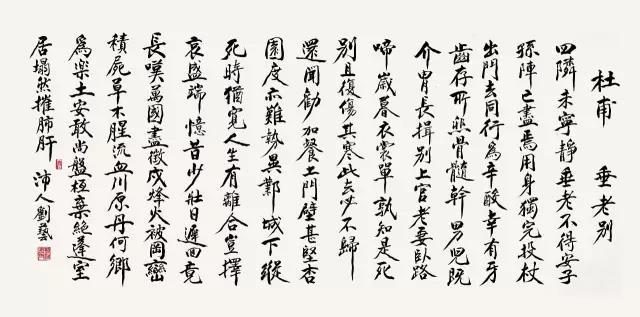 杜甫 垂老別
四隣未寧靜垂老不得安子
孫陣亡盡焉用身獨完投杖
出門去同行為辛酸幸有牙
齒存所悲骨髓幹男兒既
介胄長揖別上官老妻臥路
啼歲暮衣裳單孰知是死
別且復傷其寒此去必不歸
還聞勸加餐土門壁甚堅杏
園度亦難勢異鄴城下縱
死時猶寬人生有離合豈擇
哀盛端憶昔少壯日遲回竟
長嘆萬國盡徵戍烽火被岡巒
積屍草木腥流血川原丹何鄉
為樂土安敢尚盤桓棄絕蓬室
居塌然摧肺肝 沛人劉藝